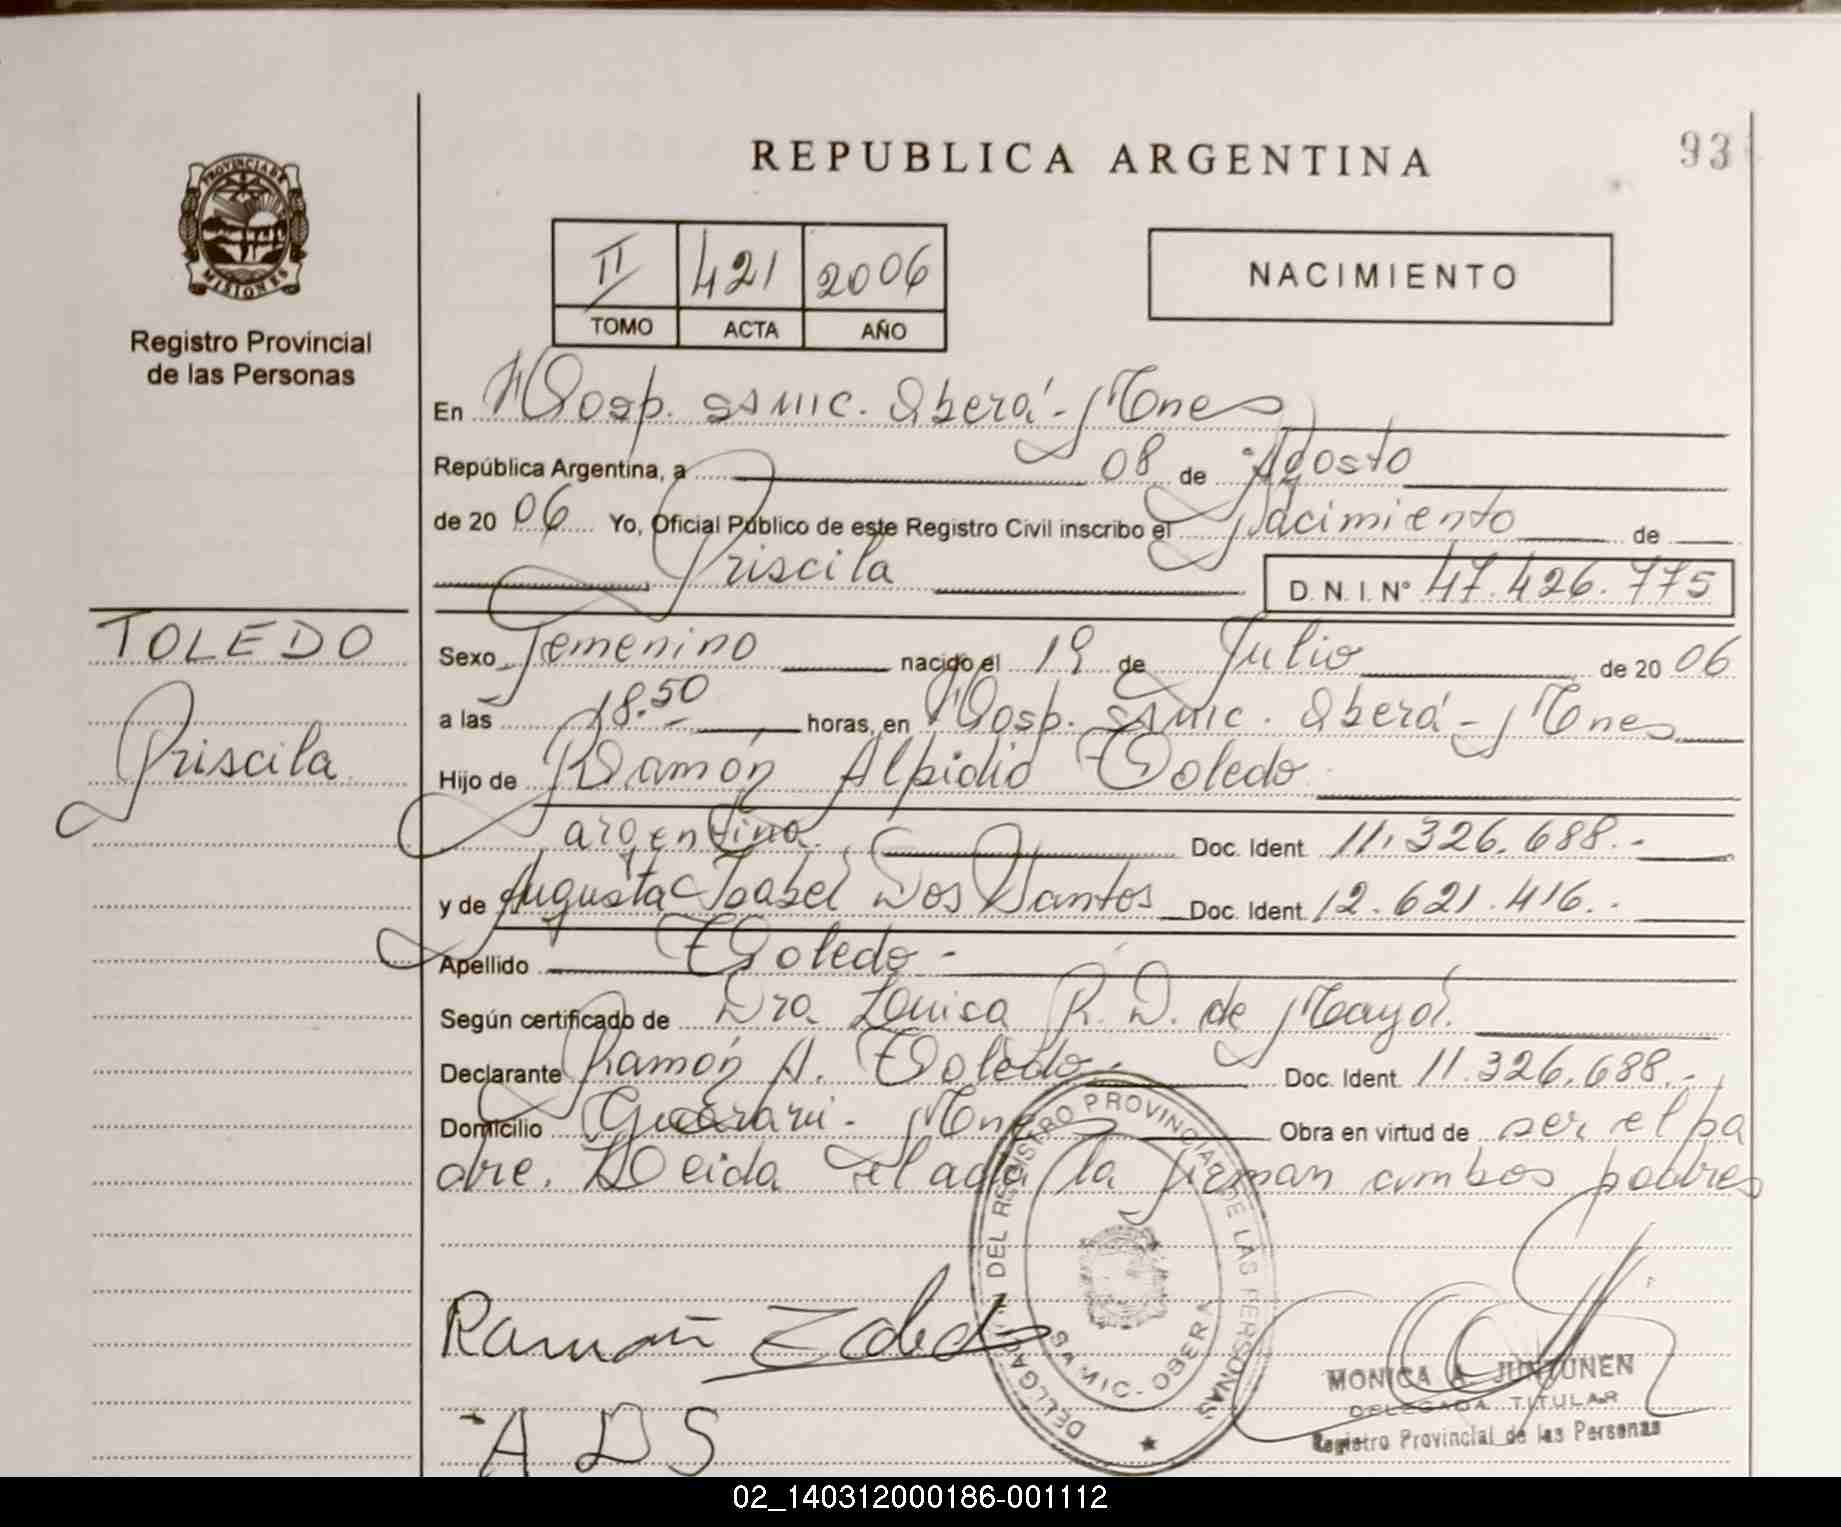 REPUBLICA ARGENTINA
93
PROVINCIA DE
MISIONES
Registro Provincial
de las Personas
II 421 2006
TOMO ACTA AÑO
NACIMIENTO
En Hosp. SAMIC. Oberá - Mnes
República Argentina, a 08 de Agosto
de 20 06 Yo, Oficial Público de este Registro Civil inscribo el Nacimiento de
Priscila D.N.I. Nº 47.426.775
TOLEDO
Priscila
Sexo Femenino nacido el 19 de Julio de 20 06
a las 18.50 horas, en Hosp. SAMIC. Oberá - Mnes
Hijo de Ramón Alpidio Toledo
argentino. Doc. Ident 11.326.688.-
y de Augusta Isabel Dos Santos Doc. Ident. 12.621.416.-
Apellido Toledo -
Según certificado de Dra Luisa R. D. de Mayol.
Declarante Ramón A. Toledo.- Doc. Ident. 11.326.688.-
Domicilio Guaraní - Mnes Obra en virtud de ser el pa
dre. Leida el acta la firman ambos padres
DELEGACION DEL REGISTRO PROVINCIAL DE LAS PERSONAS
SAMIC - OBERA
Ramón Toledo
A D S
MONICA A. JUNTUNEN
DELEGADA TITULAR
Registro Provincial de las Personas
02_140312000186-001112